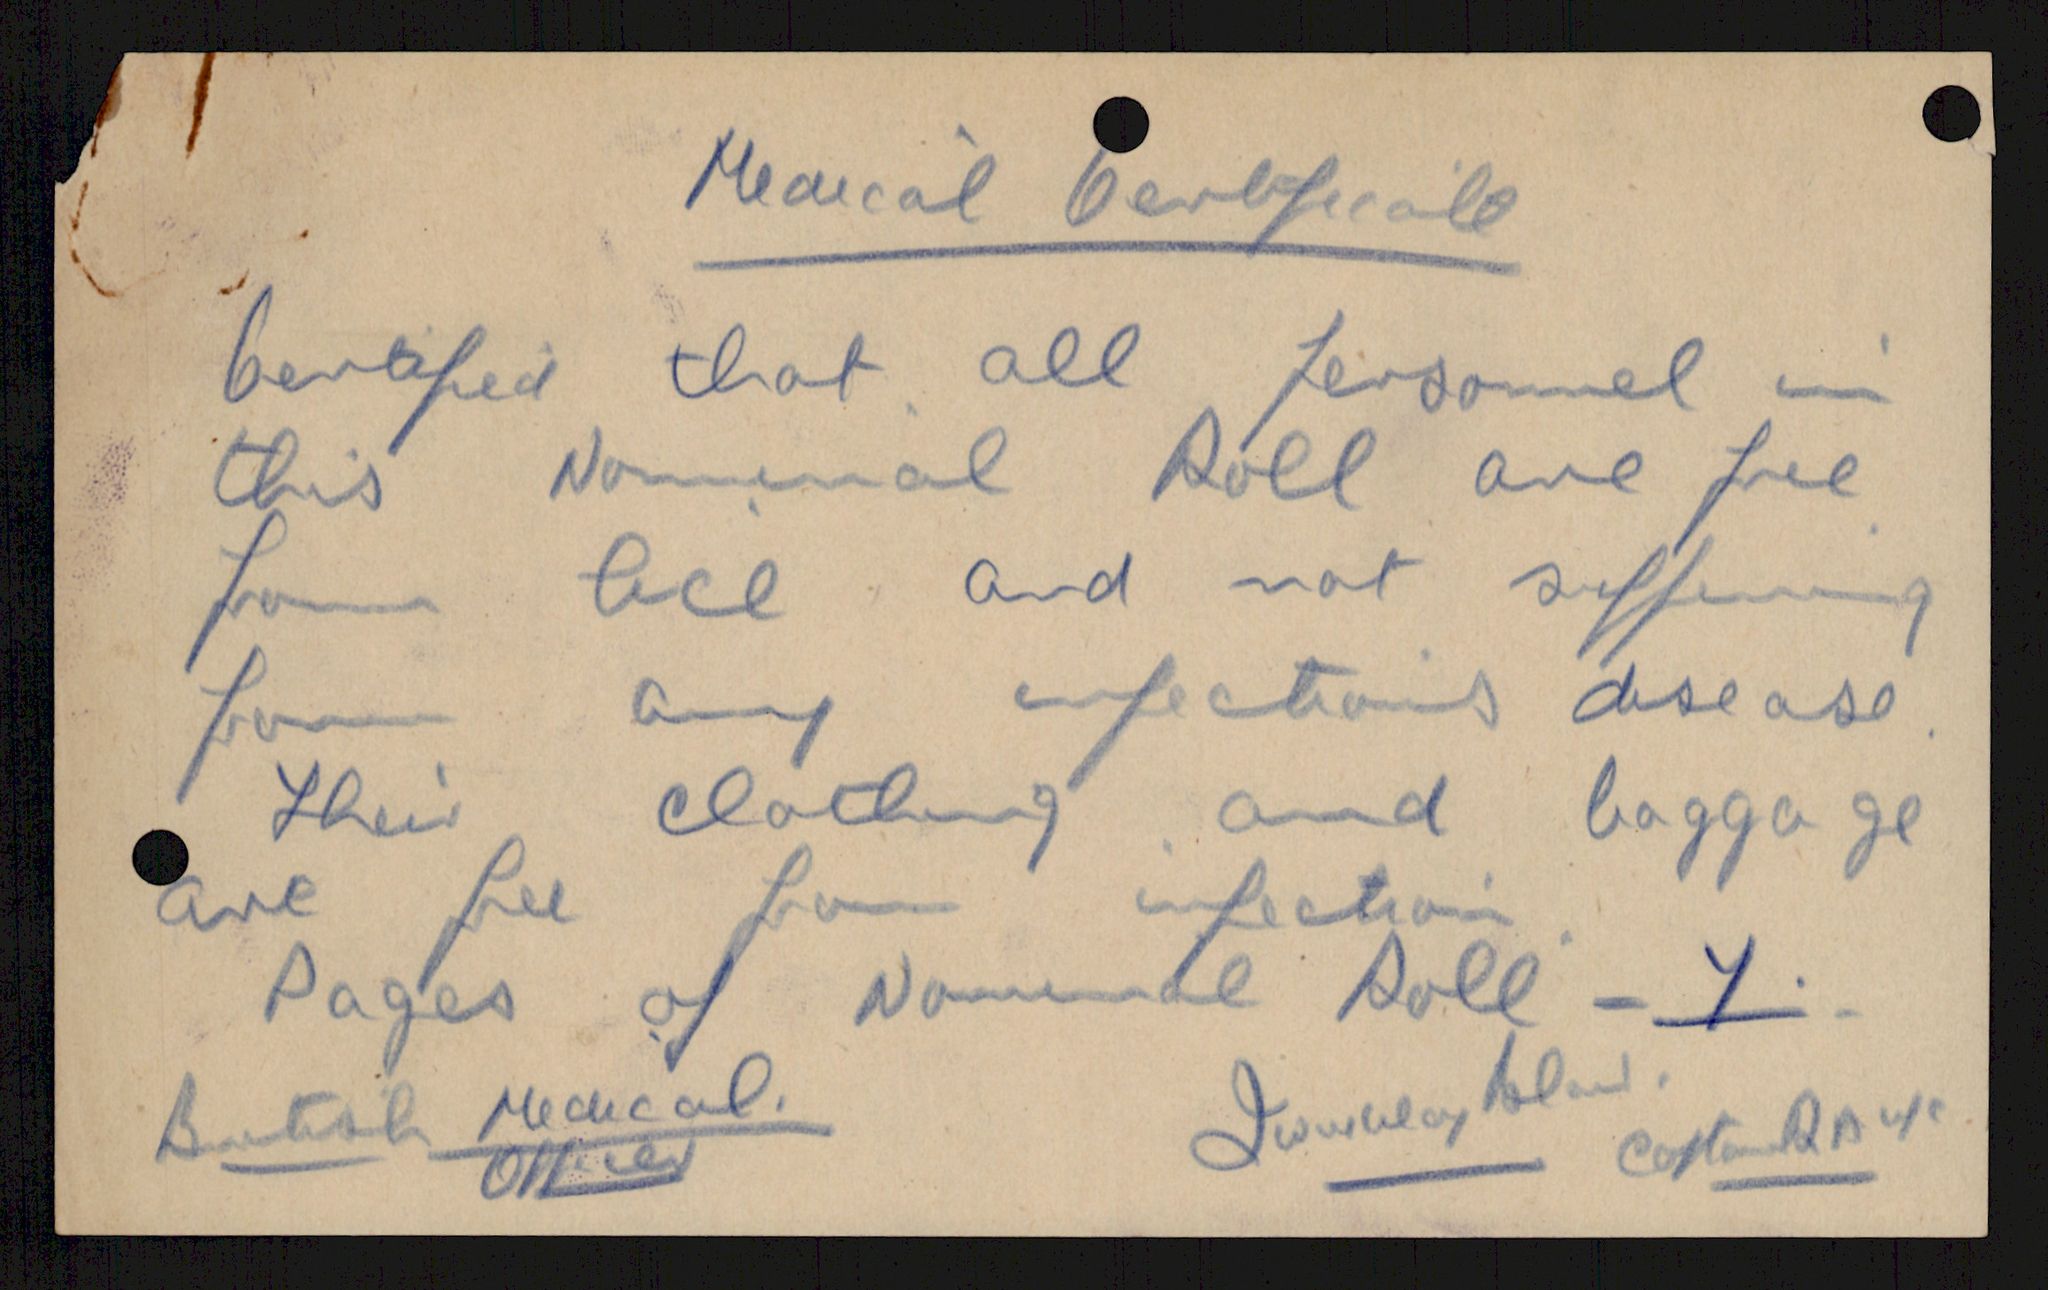 Medical Certificate
Certified that all personnel in
this Nominal Roll are free
from lice and not suffering
from any infectious disease.
Their clothing and baggage
are free from infection.
Pages of Nominal Roll - 7.
British Medical
Officer
Captain RAMC